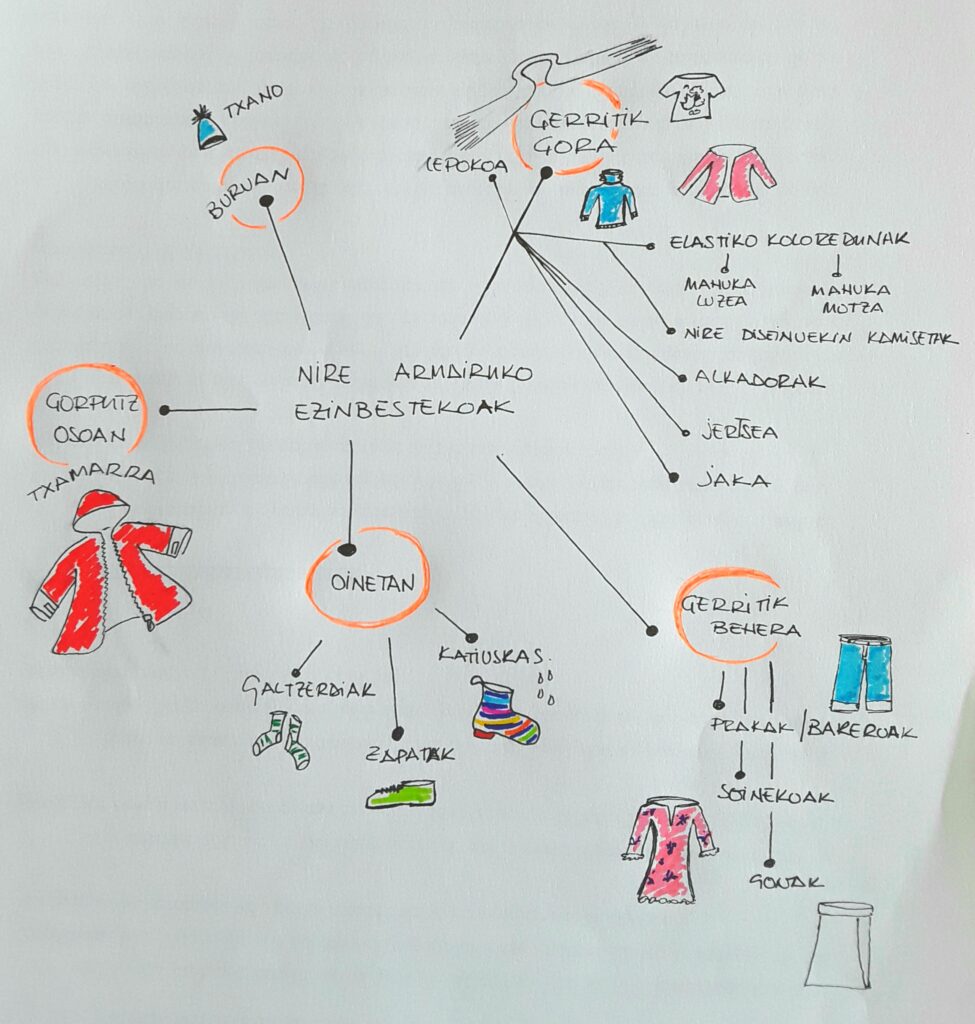 TXANO
BURUAN
GERRITIK
GORA
LEPOKOA
ELASTIKO KOLOREDUNAK
MAHUKA
LUZEA
MAHUKA
MOTZA
NIRE DISEINUEKIN KAMISETAK
ALKADORAK
JERTSEA
JAKA
NIRE ARMAIRUKO
EZINBESTEKOAK
GORPUTZ
OSOAN
TXAMARRA
OINETAN
GALTZERDIAK
ZAPATAK
KATIUSKAS
GERRITIK
BEHERA
PRAKAK/BAKEROAK
SOINEKOAK
GONAK